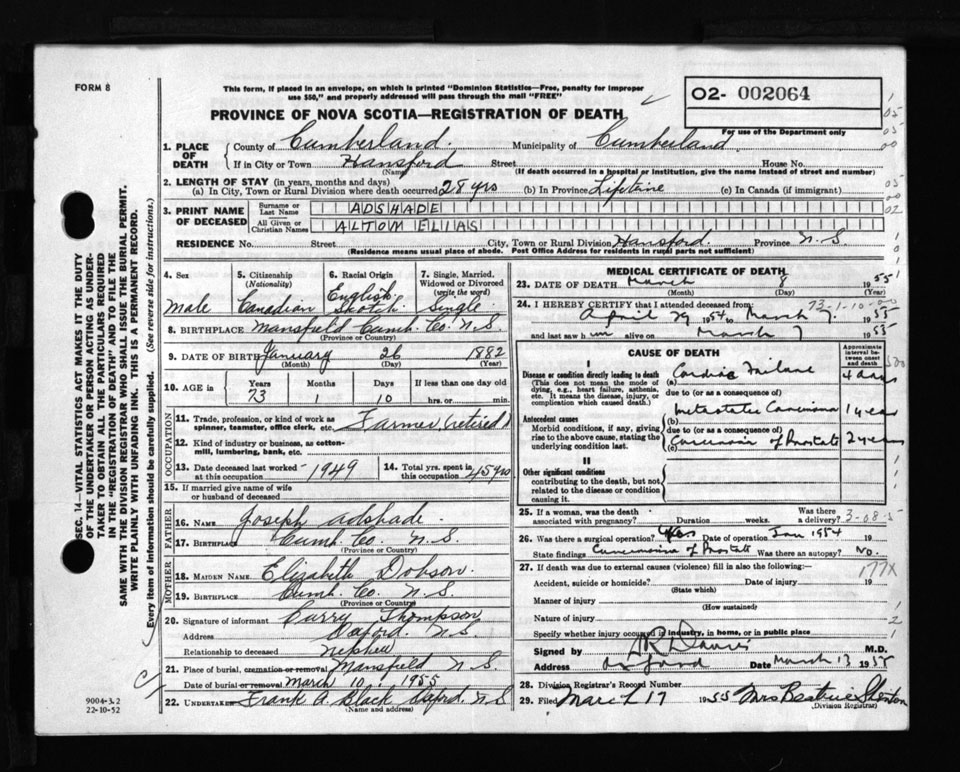 FORM 8
This form, if placed in an envelope, on which is printed "Dominion Statistics—Free, penalty for improper
use $50," and properly addressed will pass through the mail "FREE"
O2- 002064
For use of the Department only
PROVINCE OF NOVA SCOTIA—REGISTRATION OF DEATH
SEC. 14—VITAL STATISTICS ACT MAKES IT THE DUTY
OF THE UNDERTAKER OR PERSON ACTING AS UNDER-
TAKER TO OBTAIN ALL THE PARTICULARS REQUIRED
IN THE "REGISTRATION OF DEATH" AND TO FILE THE
SAME WITH THE DIVISION REGISTRAR WHO SHALL ISSUE THE BURIAL PERMIT.
WRITE PLAINLY WITH UNFADING INK. THIS IS A PERMANENT RECORD.
Every item of Information should be carefully supplied. (See reverse side for instructions.)
1. PLACE OF DEATH County of Cumberland. Municipality of Cumberland
If in City or Town Hansford Street House No.
(Name) (If death occurred in a hospital or institution, give the name instead of street and number)
2. LENGTH OF STAY (in years, months and days)
(a) In City, Town or Rural Division where death occurred 28 yrs (b) In Province Lifetime (c) In Canada (if immigrant)
3. PRINT NAME OF DECEASED
Surname or Last Name ADSHADE
All Given or Christian Names ALTOM ELIAS
RESIDENCE No. Street City, Town or Rural Division Hansford. Province N.S
(Residence means usual place of abode. Post Office Address for residents in rural parts not sufficient)
4. Sex 5. Citizenship (Nationality) 6. Racial Origin 7. Single, Married, Widowed or Divorced (write the word)
Male Canadian English Scotch Single
8. BIRTHPLACE Mansfield Cumb. Co. N.S.
(Province or Country)
9. DATE OF BIRTH January 26 1882
(Month) (Day) (Year)
10. AGE in Years Months Days If less than one day old
73 1 10 hrs. or min.
OCCUPATION
11. Trade, profession, or kind of work as spinner, teamster, office clerk, etc. Farmer (retired)
12. Kind of industry or business, as cotton-mill, lumbering, bank, etc.
13. Date deceased last worked at this occupation 1949 14. Total yrs. spent in this occupation 45 yrs
15. If married give name of wife or husband of deceased
FATHER
16. NAME Joseph Adshade.
17. BIRTHPLACE Cumb. Co. N.S.
(Province or Country)
MOTHER
18. MAIDEN NAME Elizabeth Dobson.
19. BIRTHPLACE Cumb. Co. N.S.
(Province or Country)
20. Signature of informant Thompson
Address Oxford. N.S.
Relationship to deceased Nephew
21. Place of burial, cremation or removal Mansfield N.S.
Date of burial or removal March 10 1955
22. UNDERTAKER Frank A. Black Oxford. N.S
(Name and address)
9004-3.2
22-10-52
MEDICAL CERTIFICATE OF DEATH
23. DATE OF DEATH March 8 1955
(Month) (Day) (Year)
24. I HEREBY CERTIFY that I attended deceased from:
April 29 1954 to March 7. 1955
and last saw him alive on March 7 1955
CAUSE OF DEATH
Approximate interval between onset and death
I
Disease or condition directly leading to death (a) Cardiac Failure 4 days
(This does not mean the mode of dying, e.g., heart failure, asthenia, etc. It means the disease, injury, or complication which caused death.)
due to (or as a consequence of)
Antecedent causes (b) Metastatic Carcinoma 1 year
Morbid conditions, if any, giving rise to the above cause, stating the underlying condition last.
due to (or as a consequence of)
(c) Carcinoma of Prostate 2 years
II
Other significant conditions
contributing to the death, but not related to the disease or condition causing it.
25. If a woman, was the death associated with pregnancy? Duration weeks. Was there a delivery?
26. Was there a surgical operation? Yes Date of operation Jan 1954 19
State findings Carcinoma of Prostate Was there an autopsy? No.
27. If death was due to external causes (violence) fill in also the following:
177X
Accident, suicide or homicide? Date of injury 19
(State which)
Manner of injury
(How sustained)
Nature of injury
Specify whether injury occurred in industry, in home, or in public place
Signed by M.D.
Address Oxford Date March 13 1955
28. Division Registrar's Record Number
29. Filed March 17 1955 Mrs Beatrice
(Division Registrar)